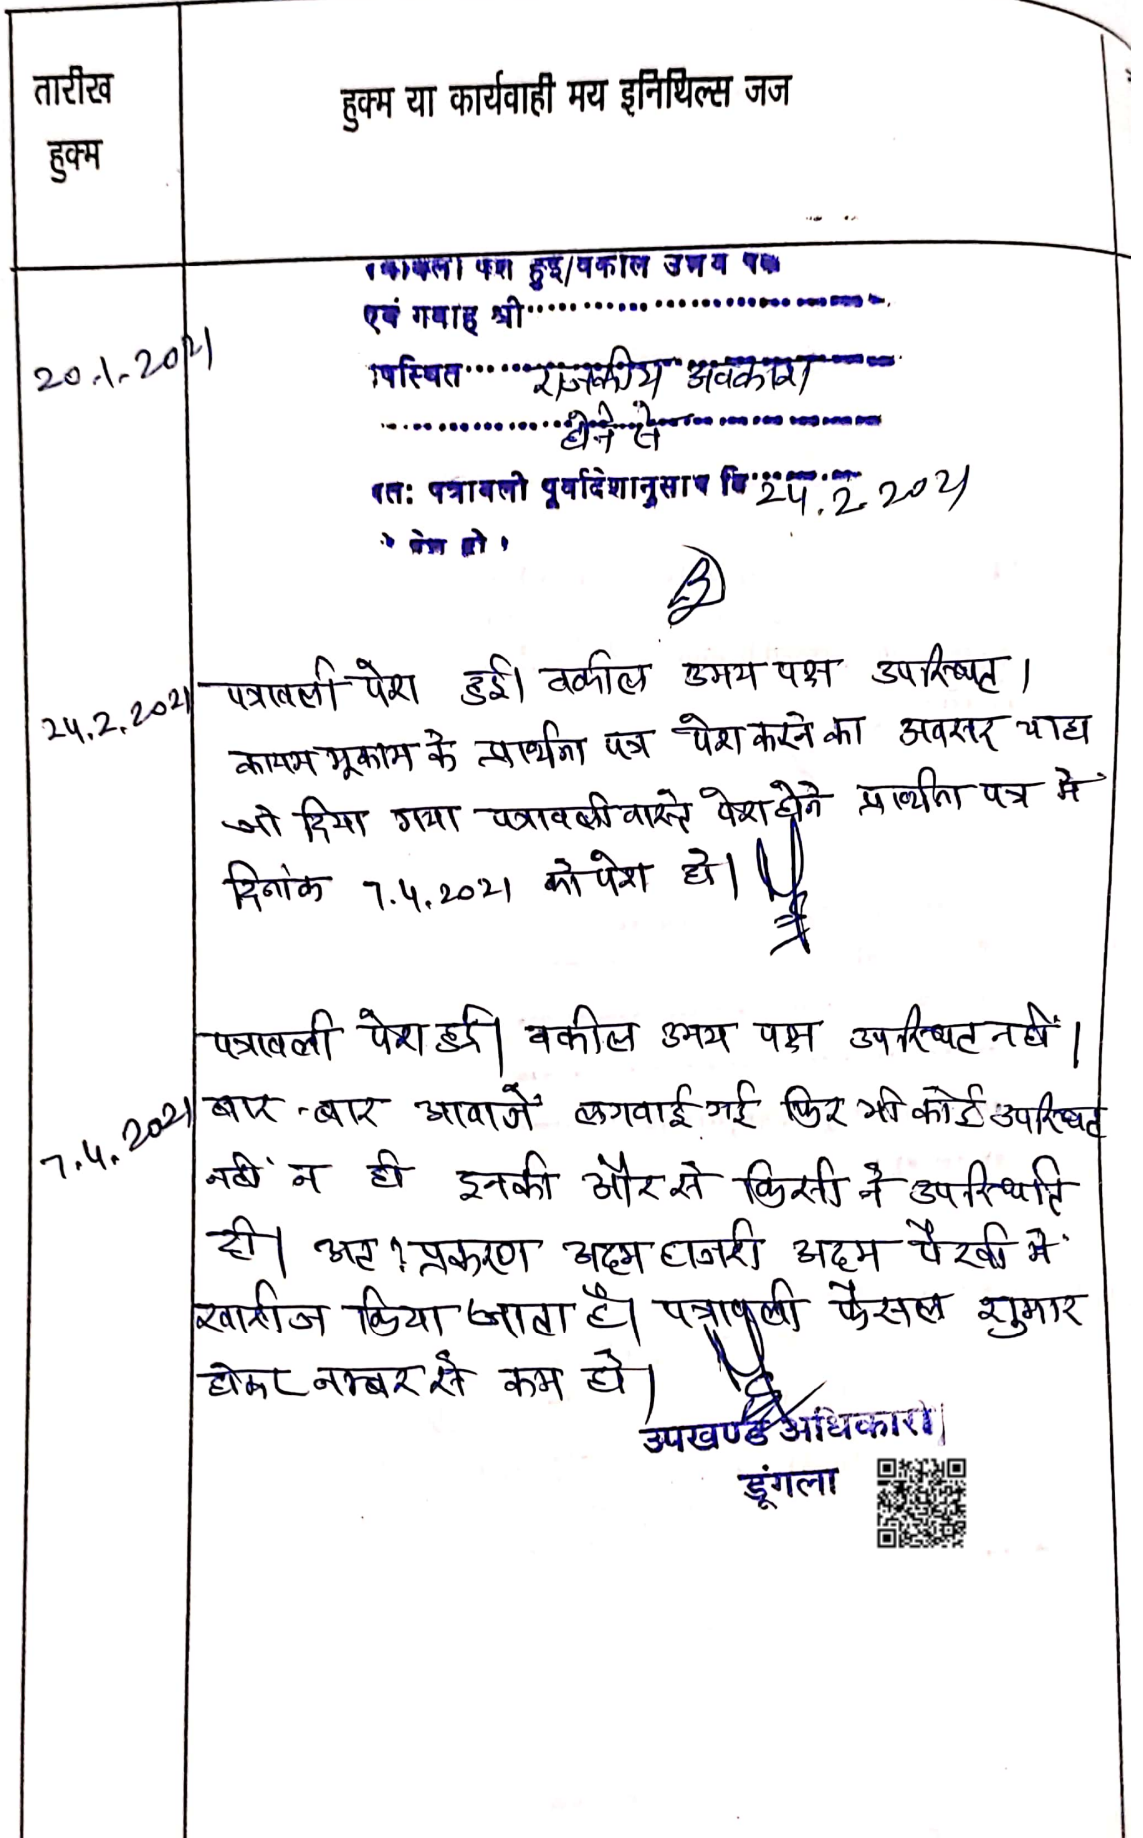 तारीख
हुक्म
हुक्म या कार्यवाही मय इनिथिल्स जज
20.1.2021
हुई/वकील उभय पक्ष
एवं गवाह श्री
राजकीय अवकाश
होने से
पत्रावली पूर्वादेशानुसार दि 24.2.2021
पेश हो।
24.2.2021
पत्रावली पेश हुई। वकील उभय पक्ष उपस्थित।
कायम मूकाम के प्रार्थना पत्र पेश करने का अवसर चाहा
जो दिया गया पत्रावली वास्ते पेश होने प्रार्थना पत्र में
दिनांक 7.4.2021 को पेश हो।
7.4.2021
पत्रावली पेश हुई। वकील उभय पक्ष उपस्थित नहीं।
बार-बार आवाजें लगवाई गई फिर भी कोई उपस्थित
नहीं न ही इनकी और से किसी ने उपस्थिति
दी। अत: प्रकरण अदम हाजरी अदम पैरवी में
खारीज किया जाता है। पत्रावली फैसल शुमार
होकर नम्बर से कम हो।
उपखण्ड अधिकारी
डूंगला